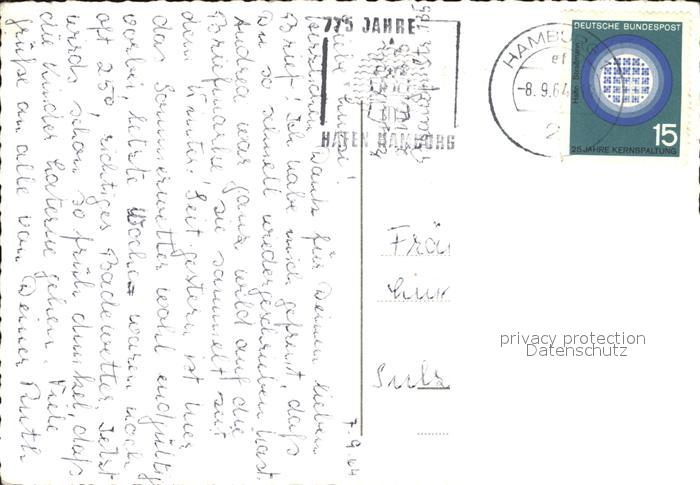 775 JAHRE
HAFEN HAMBURG
HAMBURG
-8.9.64
2
DEUTSCHE BUNDESPOST
Hahn - Straßmann
15
25 JAHRE KERNSPALTUNG
7.9.64
herzlichen Dank für Deinen lieben
Brief! Ich habe mich gefreut, daß
Du so schnell wiedergeschrieben hast.
Andrea war ganz wild auf die
Briefmarke, sie sammelt seit
dem Winter! Seit gestern ist hier
das Sommerwetter wohl endgültig
vorbei, letzte Woche waren noch
oft 25°, richtiges Badewetter. Jetzt
wird's schon so früh dunkel, daß
die Kinder Laterne gehen. Viele
Grüße an alle von Deiner Ruth
Sulz
privacy protection
Datenschutz